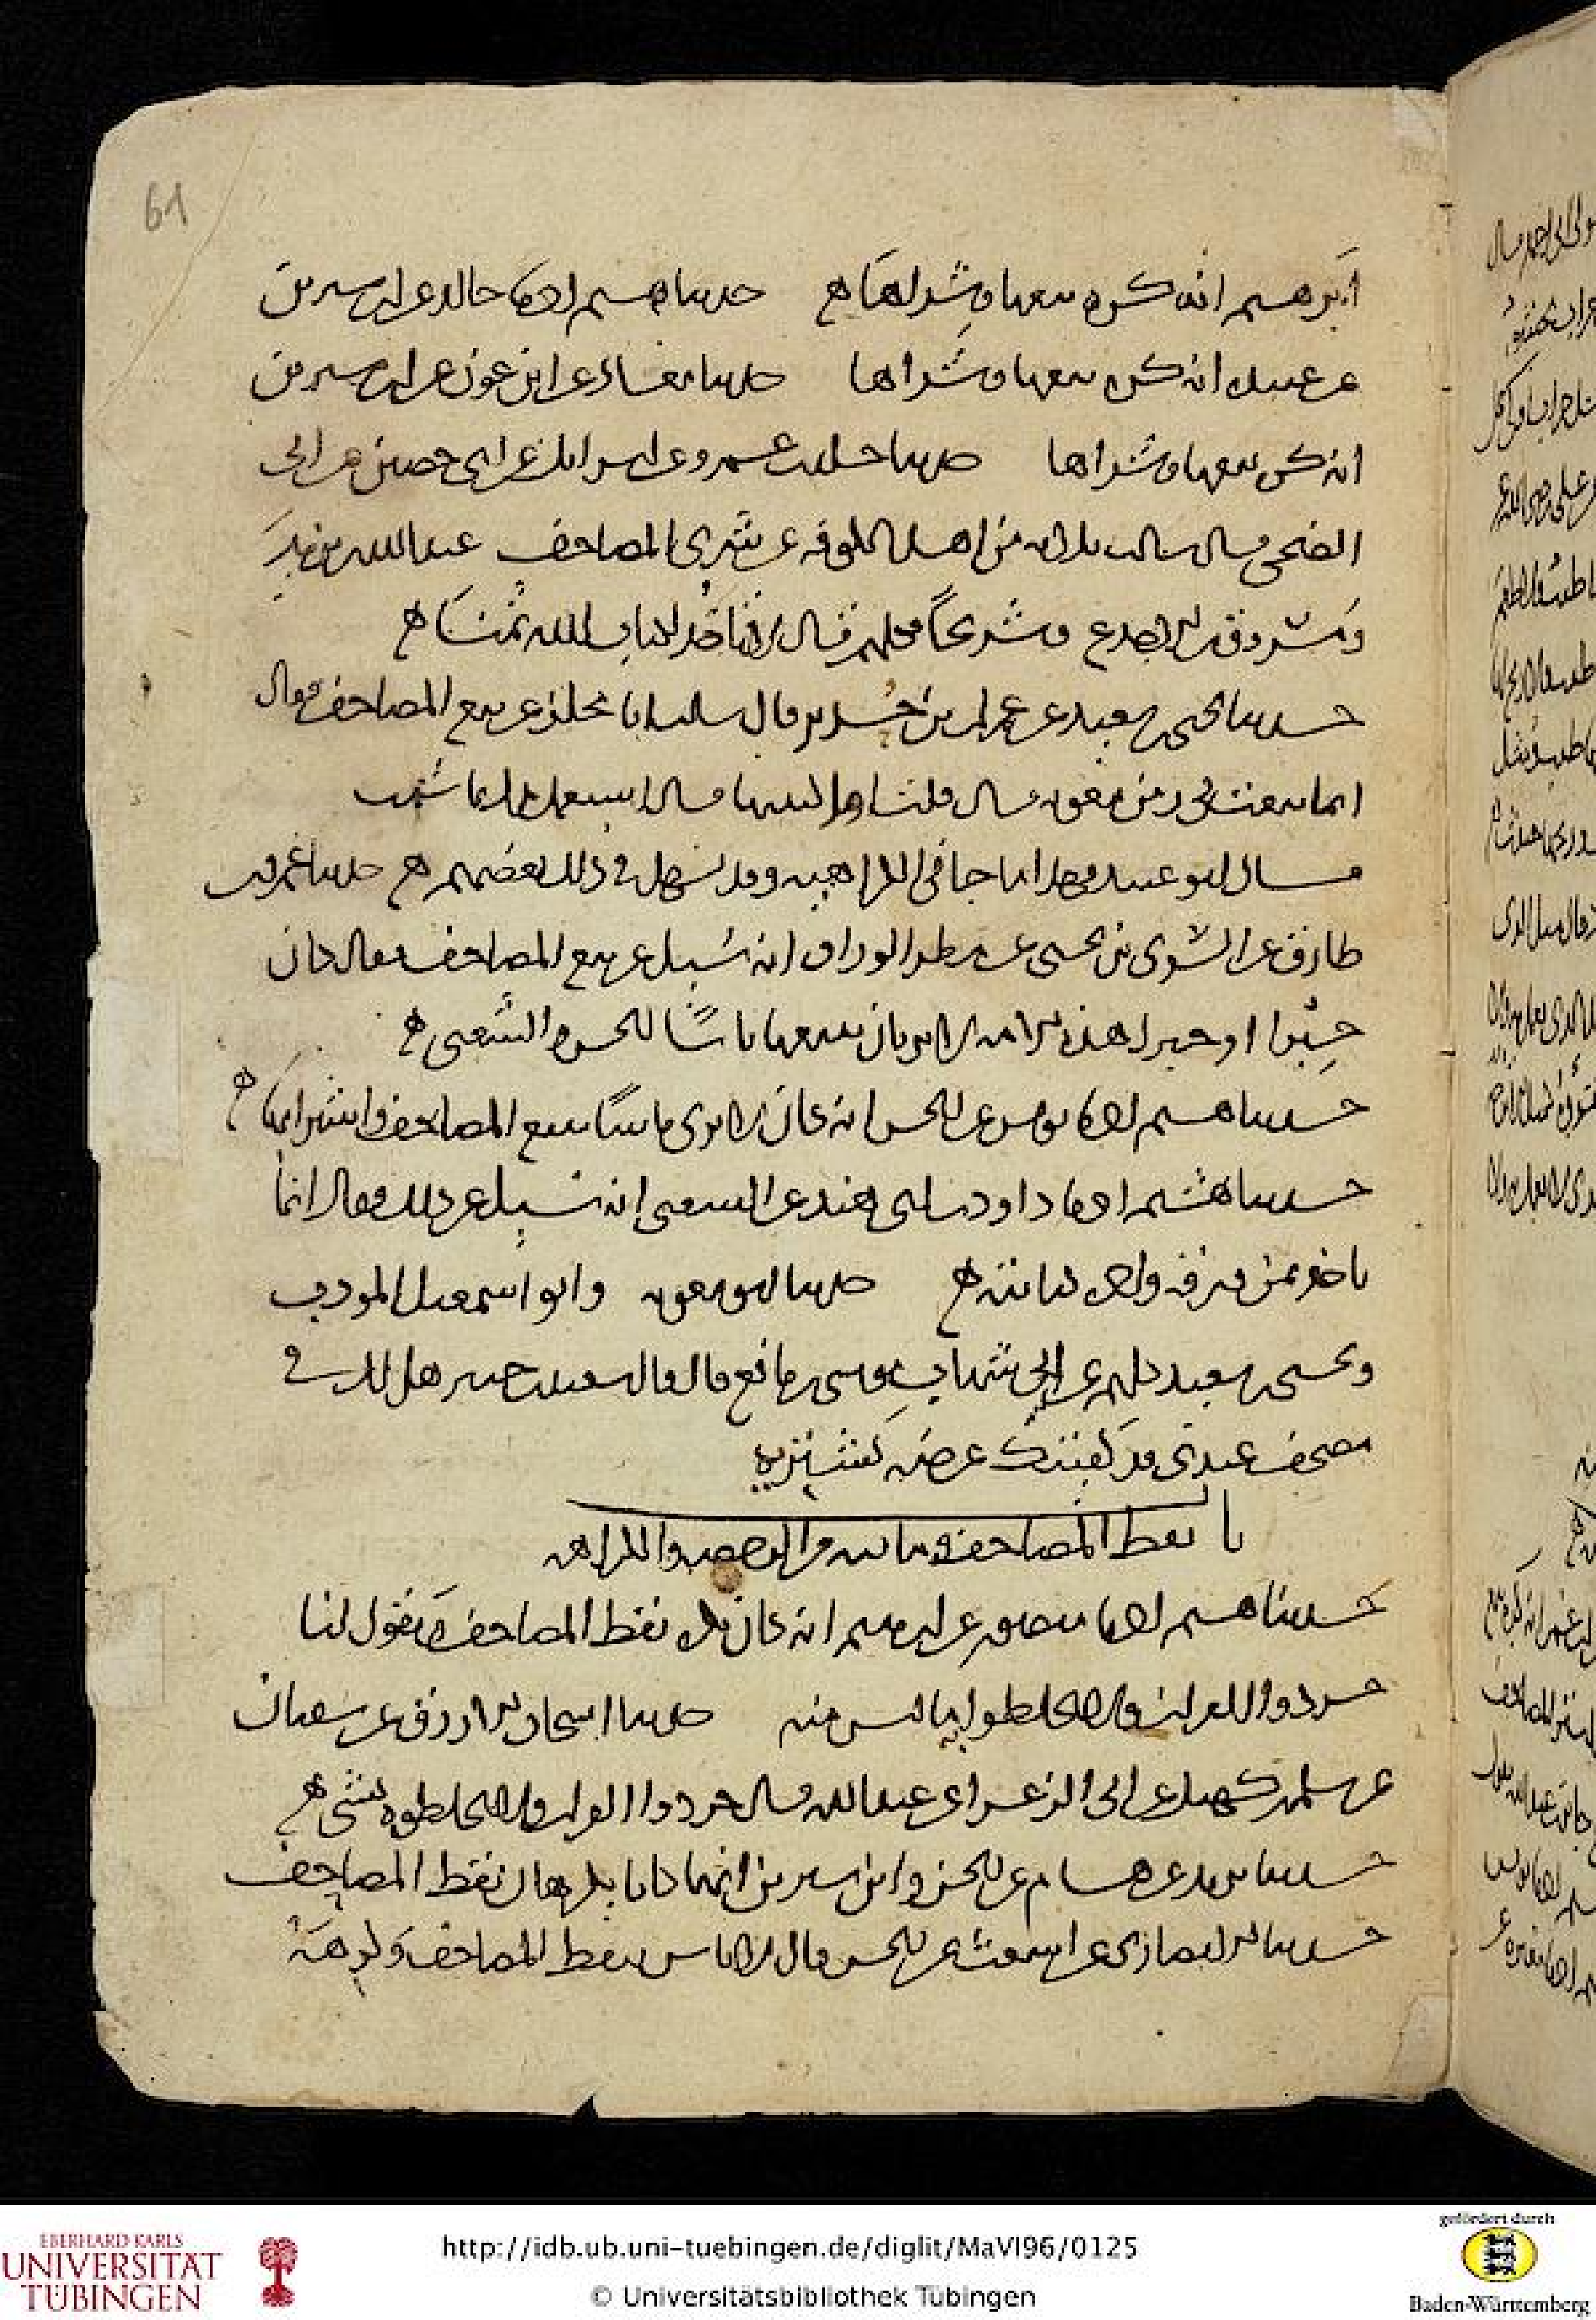 61
ابرهيم انه كره بيعها وشراها ه حدثنا هشيم اخبرنا خالد عن ابن سيرين
عن عبيدة انه كره بيعها وشراها حدثنا معاذ عن ابن عون عن ابن سيرين
انه كره بيعها وشراها عن اسرائل عن ابي حصين عن ابي
الضحى قال سالت ثلاثة من اهل الكوفة عن شرى المصاحف عبدالله بن يزيد
ومسروق بن الاجدع وشريحا فكلهم قال لا تاخذ لكتاب الله ثمنا ه
حدثنا يحيى بن سعيد عن عمران بن حدير قال سالت ابا مجلز عن بيع المصاحف فقال
انما بيعت في زمن معوية قال قلت افاكتبها قال استعمل يدك بما شئت
قال ابو عبيد فهذا ما جا في الكراهية وقد سهل في ذلك بعضهم ه حدثنا عمرو بن
طارق عن السري بن يحيى عن مطر الوراق انه سئل عن بيع المصاحف فقال كان
حبرا او خيرا هذه الامة لا يريان ببيعها باسا الحسن والشعبي ه
حدثنا هشيم اخبرنا يونس عن الحسن انه كان لا يرى باسا ببيع المصاحف واشترايها ه
حدثنا هشيم اخبرنا داود بن ابي هند عن الشعبي انه سئل عن ذلك فقال انما
ياخذ ثمن ورقه واجر كتابته ه حدثنا ابو معوية وابو اسمعيل المودب
ويحيى بن سعيد كلهم عن ابي شهاب موسى بن نافع قال قال سعيد بن جبير هل لك في
مصحف عندي قد كفيتك عرضه تشتريه
باب نقط المصاحف وما فيه من الرخصة والكراهة
حدثنا هشيم اخبرنا مغيرة عن ابرهيم انه كان يكره نقط المصاحف ويقول لنا
جردوا القران ولا تخلطوا به ما ليس منه حدثنا اسحاق الازرق عن سفيان
عن سلمة بن كهيل عن ابي الزعرا عن عبدالله قال جردوا القران ولا تخلطوه بشي ه
حدثنا يزيد عن هشام عن الحسن وابن سيرين انهما كانا يكرهان نقط المصاحف
حدثنا الانصاري عن اشعث عن الحسن قال لا باس بنقط المصاحف وكرهه
EBERHARD KARLS
UNIVERSITÄT
TÜBINGEN
http://idb.ub.uni-tuebingen.de/diglit/MaVI96/0125
© Universitätsbibliothek Tübingen
gefördert durch
Baden-Württemberg